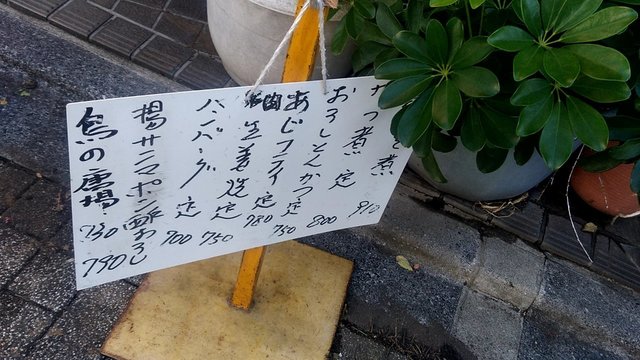 と煮 910
つ煮 定 800
おろしとんかつ 定 750
あじフライ 定 780
生姜焼 定 750
ハンバーグ 定 900
揚サンマポン酢おろし 790
鳥の唐揚 730